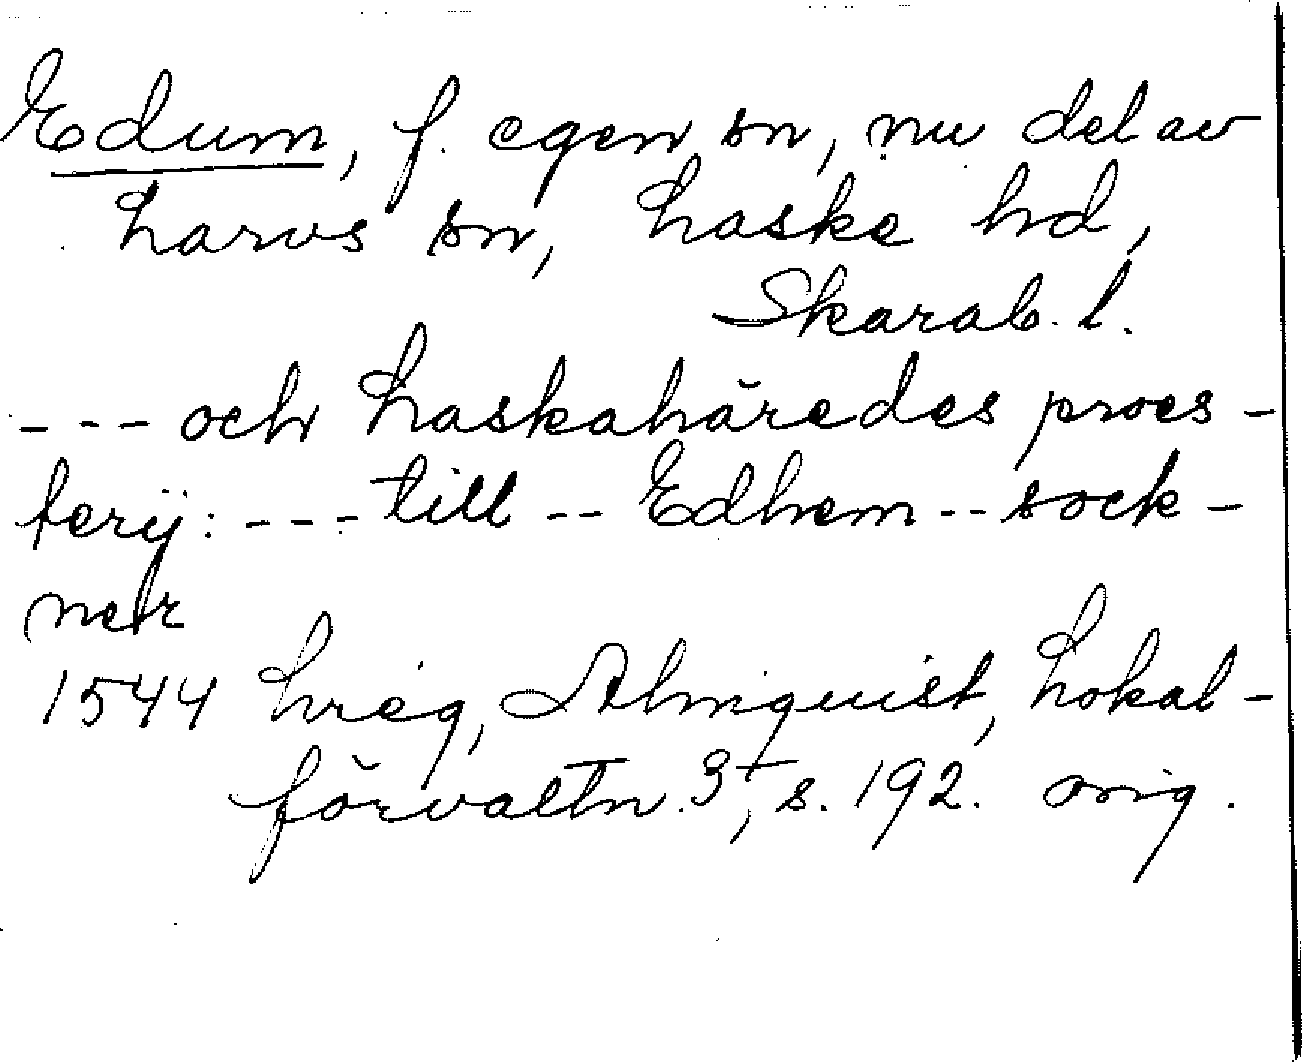 Edum, f. egen sn, nu del av
Larvs sn, Laske hd,
Skarab. l.
- - - och Laskahäredes proes-
terij: - - - till -- Edhem -- sock-
ner
1544 Lreg, Almquist, Lokal-
förvaltn. 3, s. 192. orig.